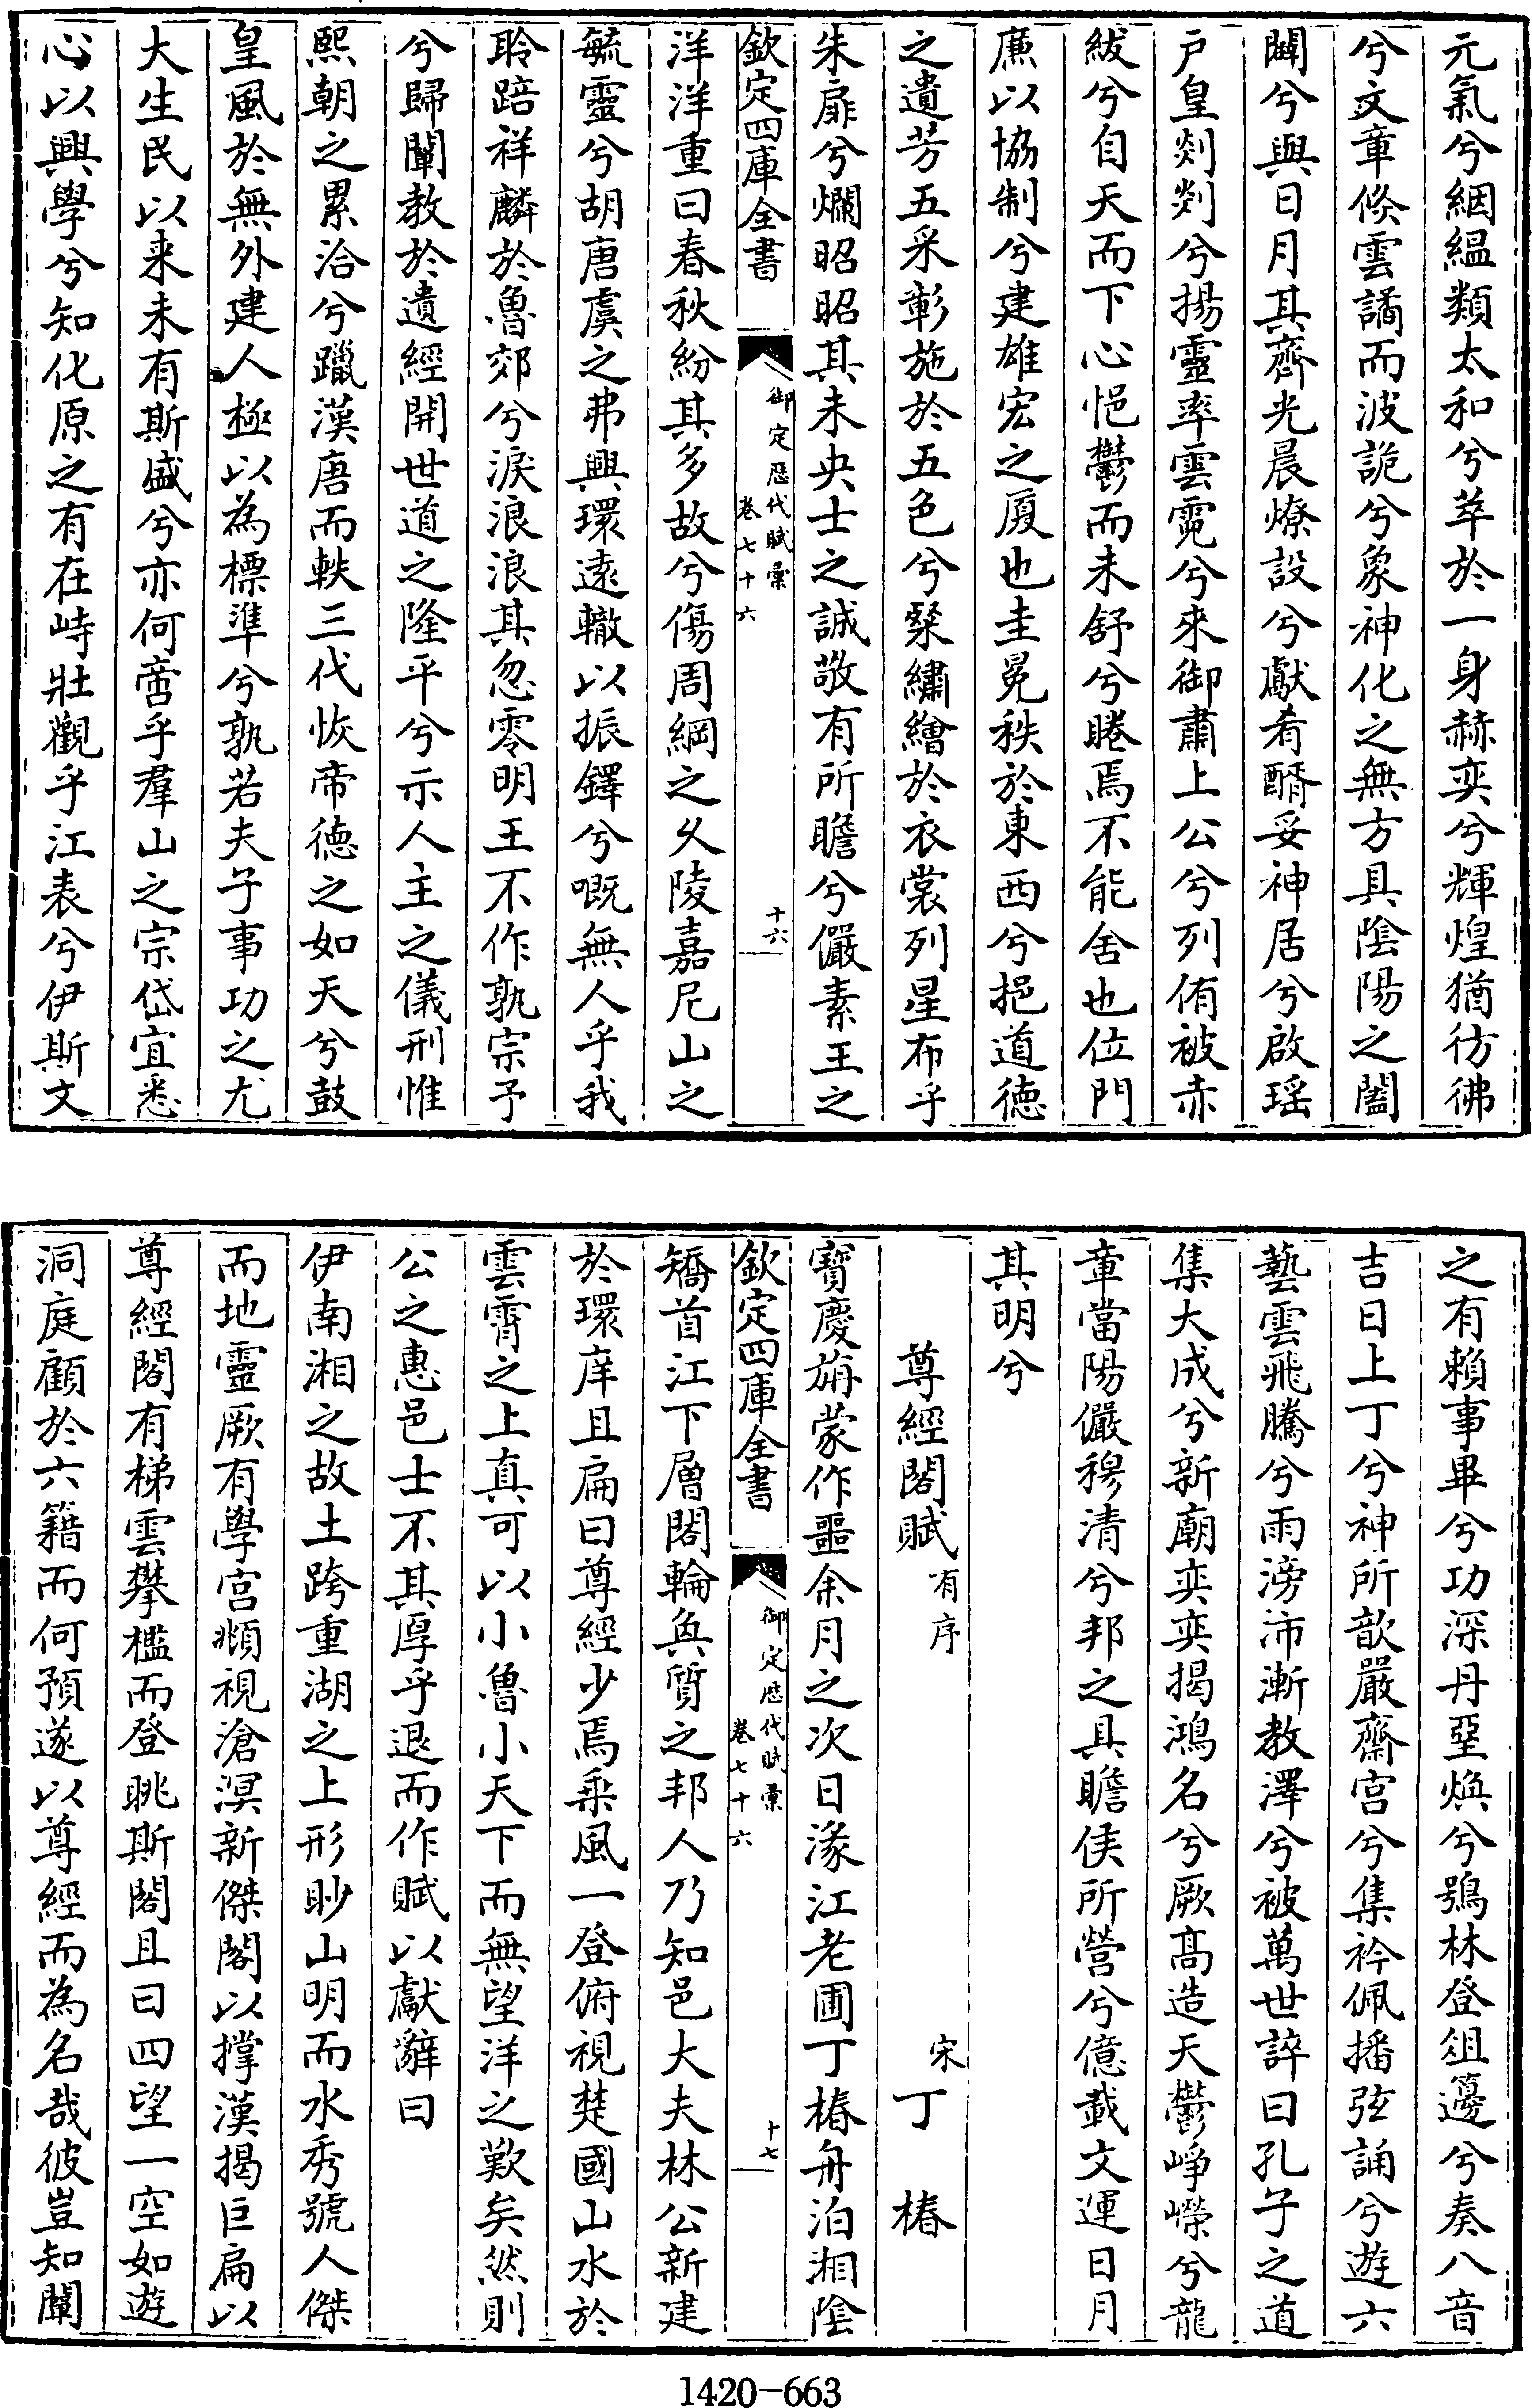 元氣兮絪縕類太和兮萃於一身赫奕兮輝煌猶彷彿
兮文章倐雲譎而波詭兮象神化之無方具陰陽之闔
闢兮與日月其齊光晨燎設兮獻肴醑妥神居兮啟瑶
户皇剡剡兮揚靈率雲霓兮來御肅上公兮列侑被赤
紱兮自天而下心悒鬱而未舒兮睠焉不能舍也位門
廡以協制兮建雄宏之厦也圭冕秩於東西兮挹道德
之遺芳五采彰施於五色兮粲繡繪於衣裳列星布乎
朱扉兮爛昭昭其未央士之誠敬有所瞻兮儼素王之
欽定四庫全書
御定歴代賦彙
卷七十六
十六
洋洋重曰春秋紛其多故兮傷周綱之久陵嘉尼山之
毓靈兮胡唐虞之弗興環遠轍以振鐸兮嘅無人乎我
聆踣祥麟於魯郊兮淚浪浪其忽零明王不作孰宗予
兮歸闡教於遺經開世道之隆平兮示人主之儀刑惟
熙朝之累洽兮躐漢唐而軼三代恢帝德之如天兮鼓
皇風於無外建人極以為標準兮孰若夫子事功之尤
大生民以来未有斯盛兮亦何啻乎羣山之宗岱宜悉
心以興學兮知化原之有在峙壯觀乎江表兮伊斯文
之有賴事畢兮功深丹堊煥兮鴞林登俎籩兮奏八音
吉日上丁兮神所歆嚴齋宫兮集衿佩播弦誦兮遊六
藝雲飛騰兮雨滂沛漸教澤兮被萬世誶曰孔子之道
集大成兮新廟奕奕揭鴻名兮厥髙造天鬱崢嶸兮龍
章當陽儼穆清兮邦之具瞻侯所營兮億載文運日月
其明兮
尊經閣賦 有序 宋 丁椿
寳慶旃蒙作噩余月之次日湪江老圃丁椿舟泊湘隂
欽定四庫全書
御定歴代賦彙
卷七十六
十七
矯首江下層閣輪奐質之邦人乃知邑大夫林公新建
於環庠且扁曰尊經少焉乘風一登俯視楚國山水於
雲霄之上真可以小魯小天下而無望洋之歎矣然則
公之惠邑士不其厚乎退而作賦以獻辭曰
伊南湘之故土跨重湖之上形眇山明而水秀號人傑
而地靈厥有學宫頫視滄溟新傑閣以撑漢揭巨扁以
尊經閣有梯雲攀檻而登眺斯閣且曰四望一空如遊
洞庭顧於六籍而何預遂以尊經而為名哉彼豈知闡
1420-663